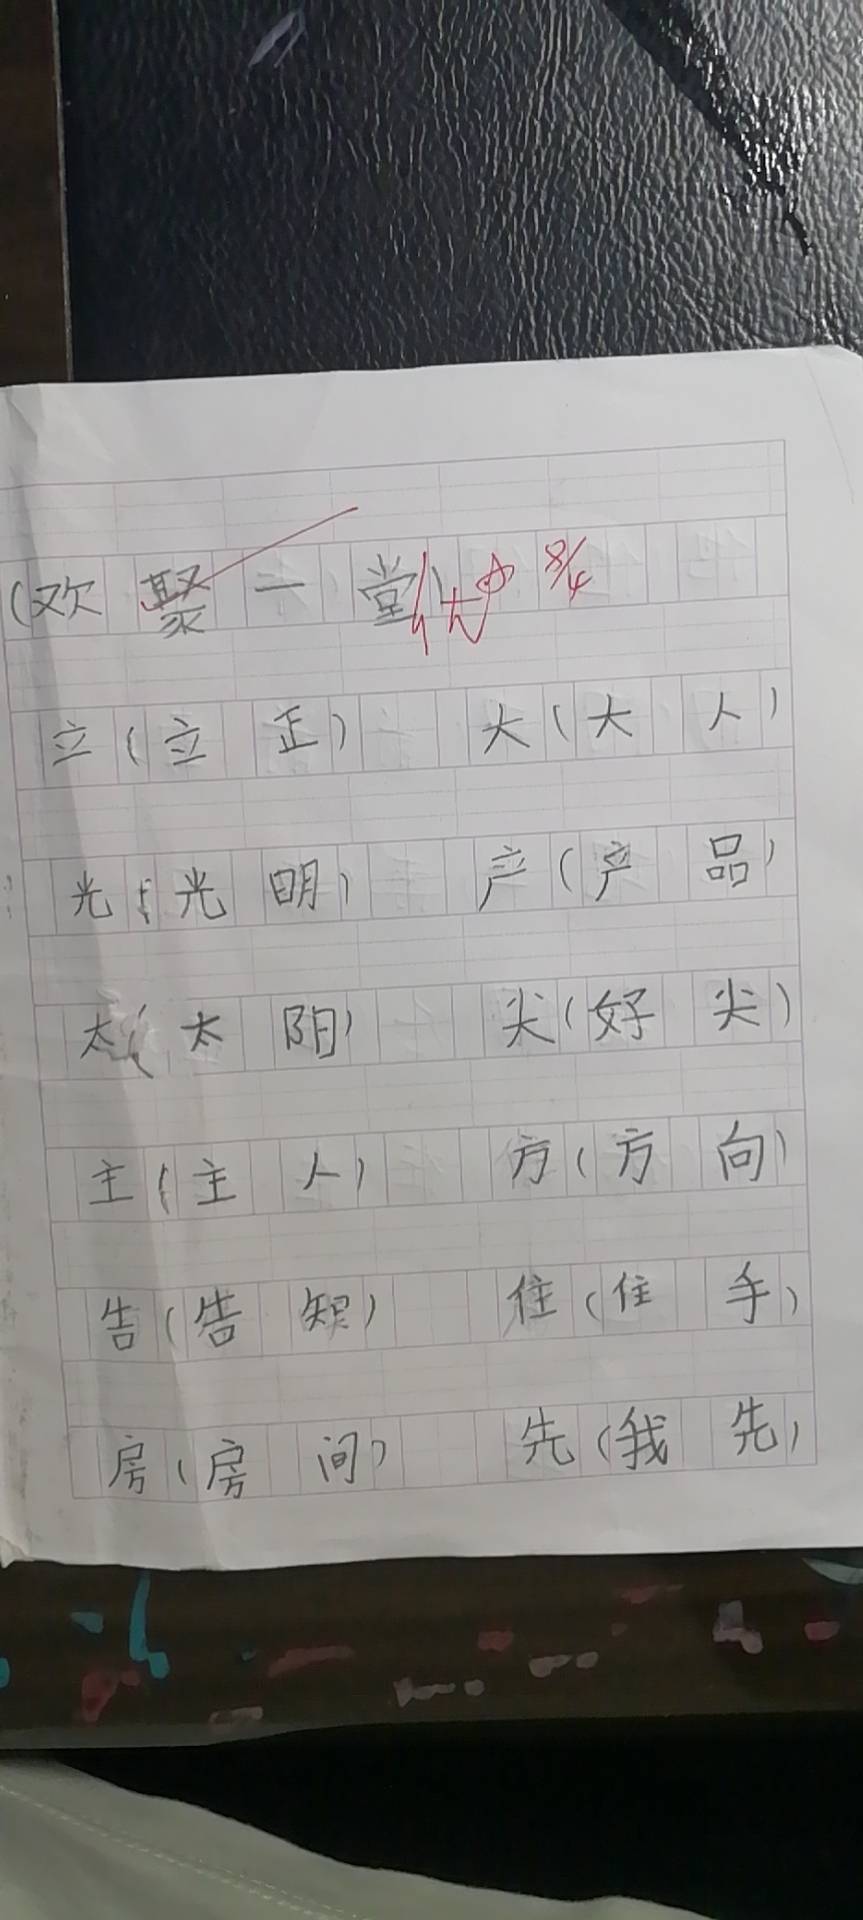 (欢聚一堂) 优 8/4
立(立正) 大(大人)
光(光明) 产(产品)
太(太阳) 尖(好尖)
主(主人) 方(方向)
告(告知) 住(住手)
房(房间) 先(我先)